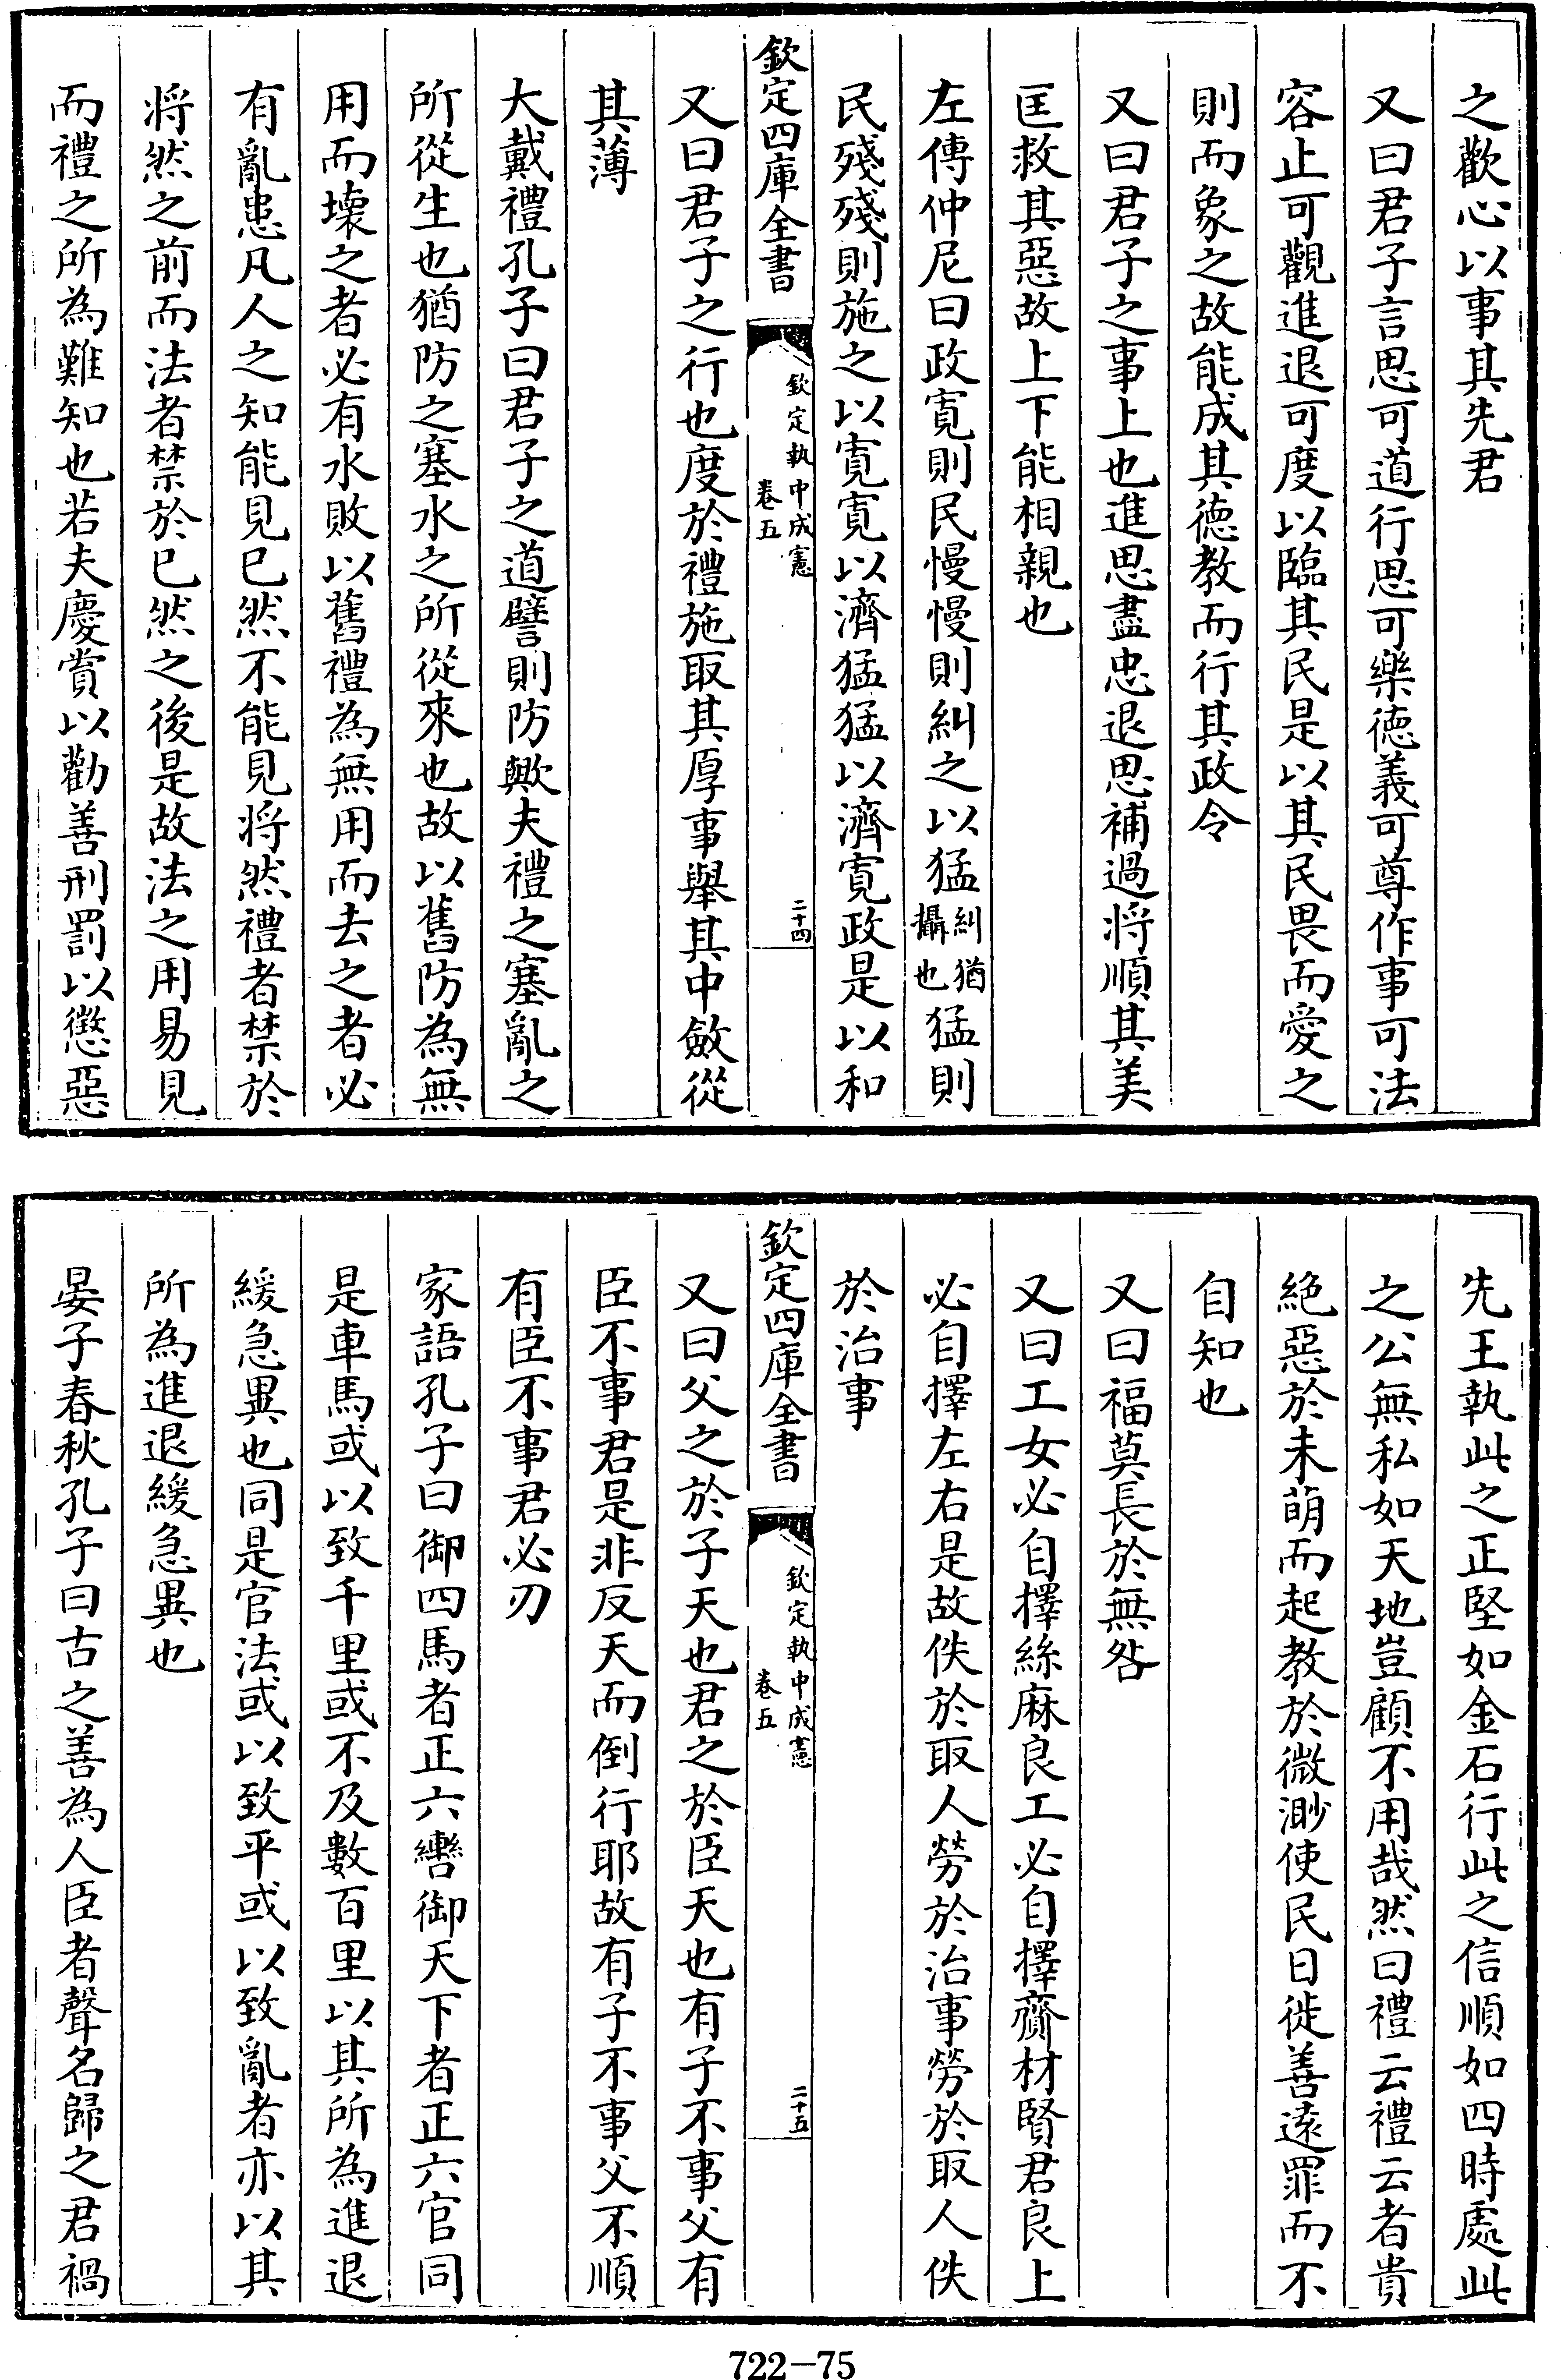 之歡心以事其先君
又曰君子言思可道行思可樂德義可尊作事可法
容止可觀進退可度以臨其民是以其民畏而愛之
則而象之故能成其德教而行其政令
又曰君子之事上也進思盡忠退思補過將順其美
匡救其惡故上下能相親也
左傳仲尼曰政寛則民慢慢則糾之以猛糾猶攝也猛則
民殘殘則施之以寛寛以濟猛猛以濟寛政是以和
欽定四庫全書 欽定執中成憲 卷五 二十四
又曰君子之行也度於禮施取其厚事舉其中斂從
其薄
大戴禮孔子曰君子之道譬則防歟夫禮之塞亂之
所從生也猶防之塞水之所從來也故以舊防為無
用而壞之者必有水敗以舊禮為無用而去之者必
有亂患凡人之知能見已然不能見将然禮者禁於
将然之前而法者禁於已然之後是故法之用易見
而禮之所為難知也若夫慶賞以勸善刑罰以懲惡
先王執此之正堅如金石行此之信順如四時處此
之公無私如天地豈顧不用哉然曰禮云禮云者貴
絕惡於未萌而起教於微渺使民日徙善遠罪而不
自知也
又曰福莫長於無咎
又曰工女必自擇絲麻良工必自擇齎材賢君良上
必自擇左右是故佚於取人勞於治事勞於取人佚
於治事
欽定四庫全書 欽定執中成憲 卷五 二十五
又曰父之於子天也君之於臣天也有子不事父有
臣不事君是非反天而倒行耶故有子不事父不順
有臣不事君必刃
家語孔子曰御四馬者正六轡御天下者正六官同
是車馬或以致千里或不及數百里以其所為進退
緩急異也同是官法或以致平或以致亂者亦以其
所為進退緩急異也
晏子春秋孔子曰古之善為人臣者聲名歸之君禍
722-75